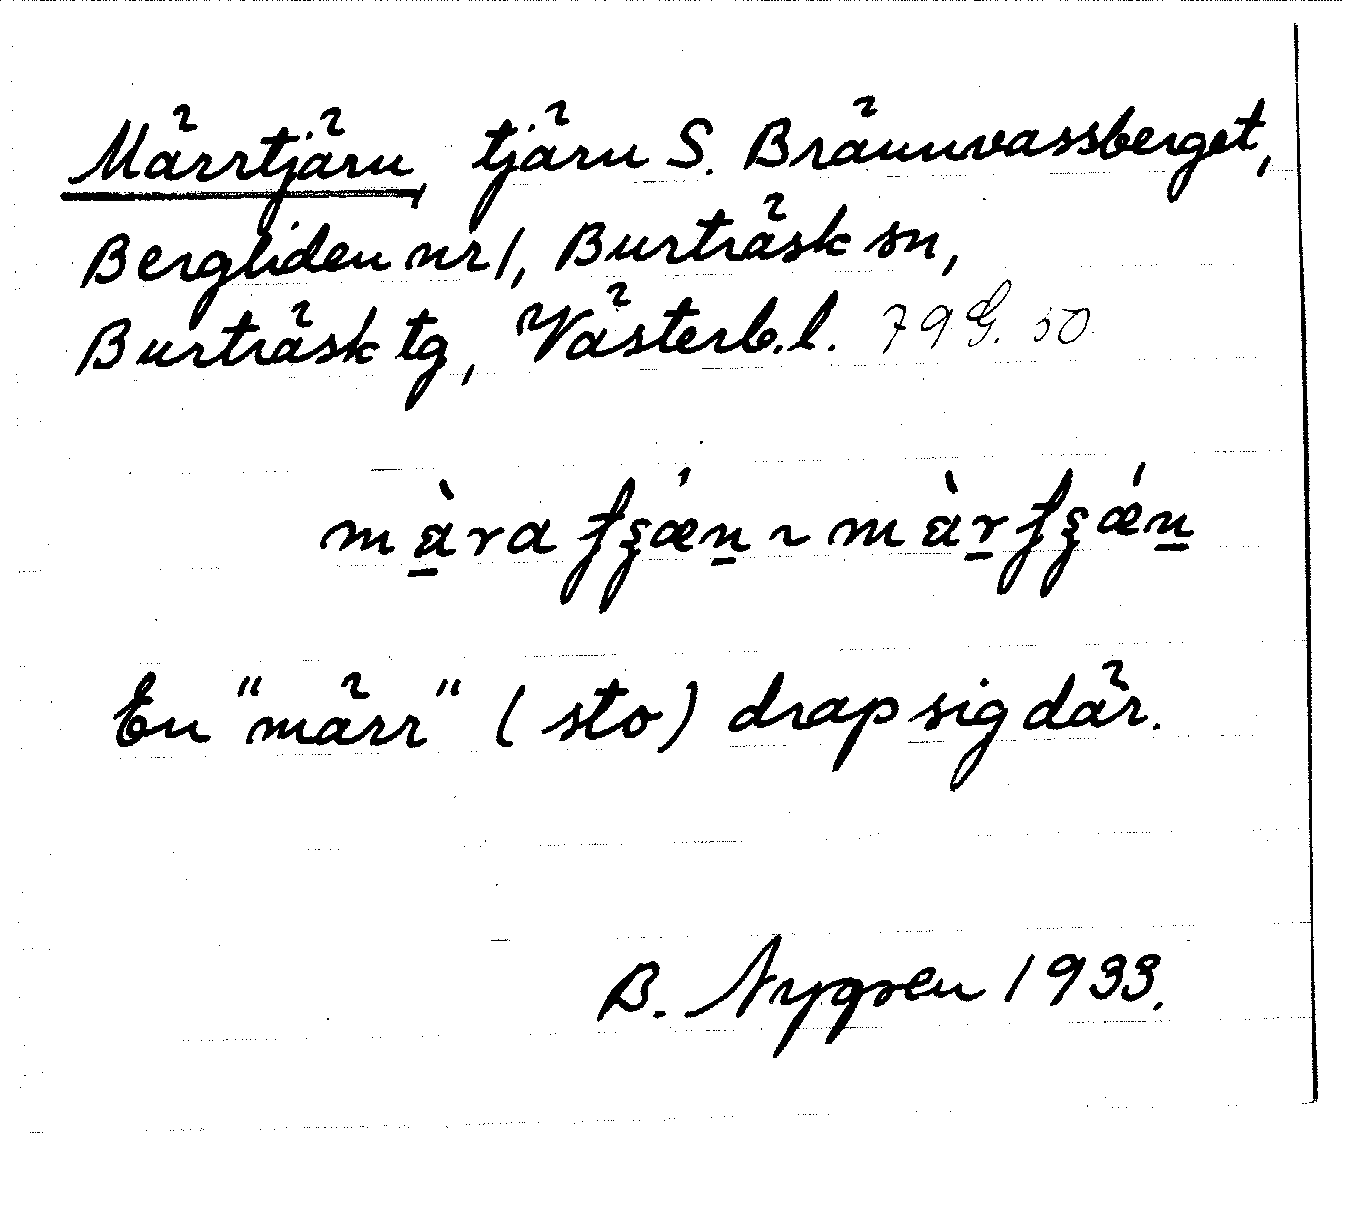 Märrtjärn, tjärn S. Brännvassberget,
Bergliden nr 1, Burträsk sn,
Burträsk tg, Västerb.l. 79 G. 50
En "märr" (sto) drap sig där.
B. Nygren 1933.